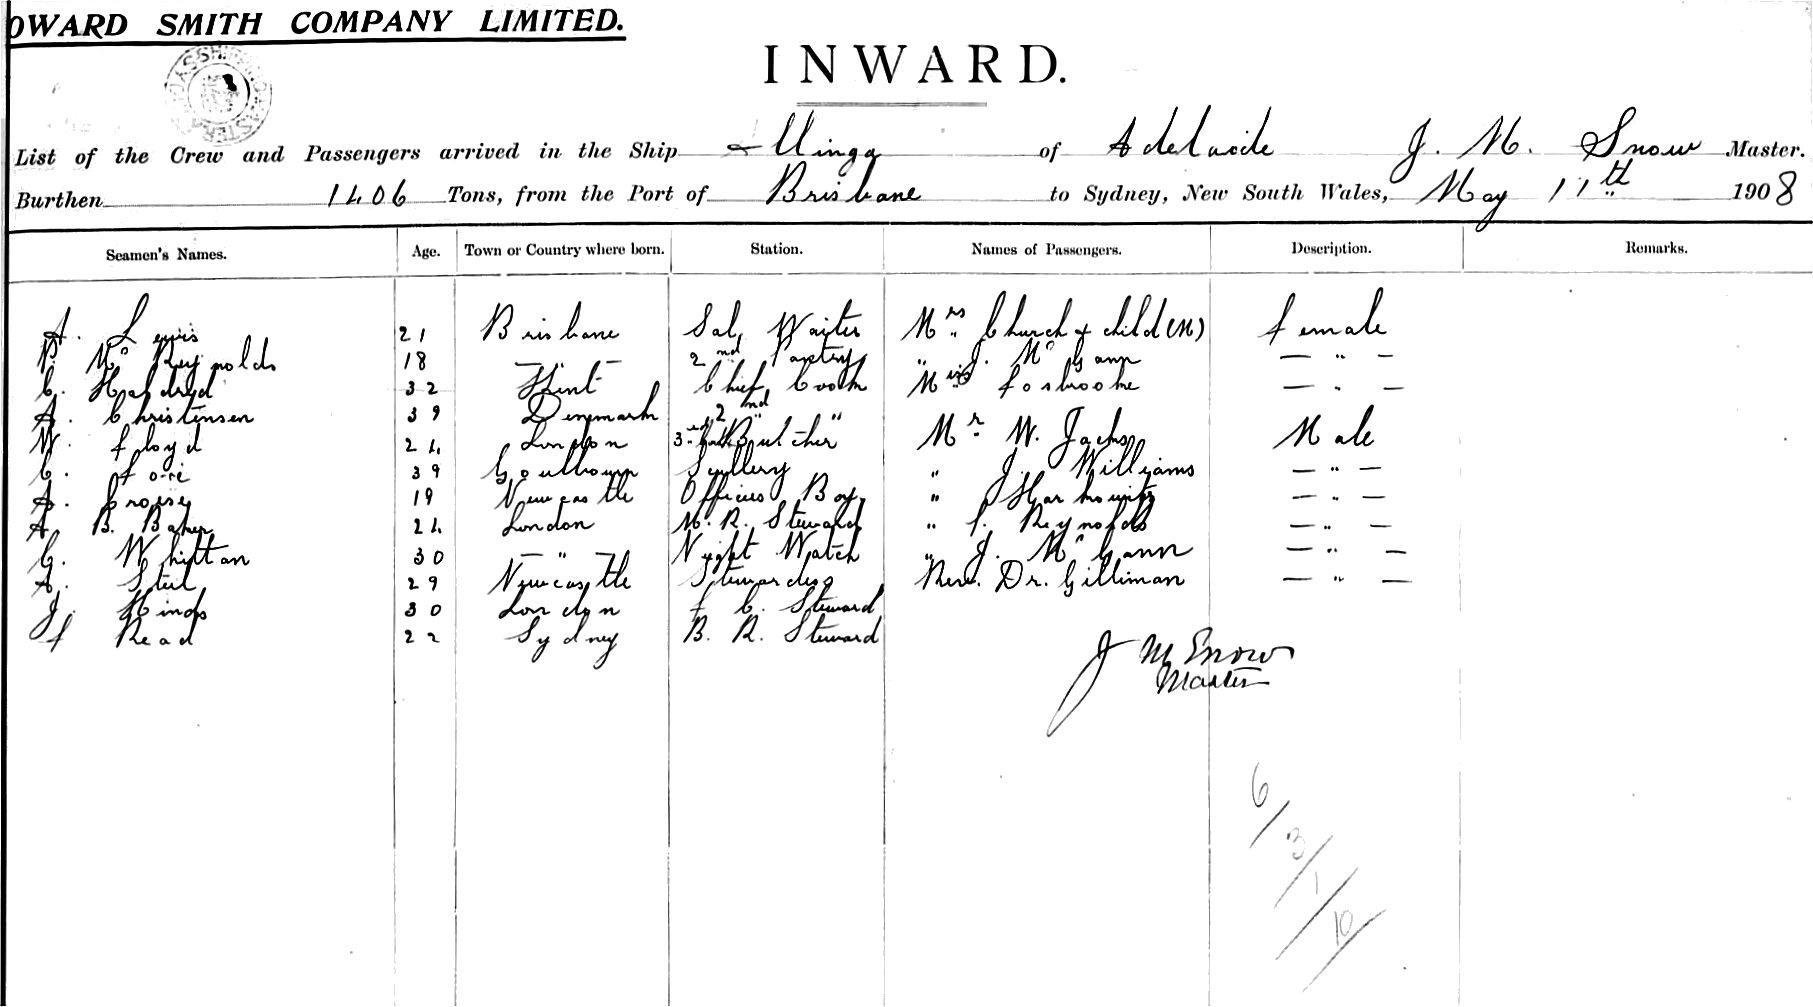 OWARD SMITH COMPANY LIMITED.
INWARD.
List of the Crew and Passengers arrived in the Ship of Adelaide J. M. Snow Master.
Burthen 1406 Tons, from the Port of Brisbane to Sydney, New South Wales, May 11th 1908
Seamen's Names. Age. Town or Country where born. Station. Names of Passengers. Description. Remarks.
A. Lewis 21 Brisbane Sal. Waiter Mrs Church & child (M) female
P. McReynolds 18 — " — 2nd Pantry " J. McGann — " —
C. 32 Chief Cook Miss Fosbrooke — " —
A. Christensen 39 Denmark 2nd " "
W. Floyd 24 London 3rd Butcher Mr W. Jackson Male
C. 39 Goulburn Scullery " J. Williams — " —
A. 19 Newcastle Officers Boy " J. — " —
A. B. Baker 24 London M. R. Steward " Reynolds — " —
G. Whittan 30 — " — Night Watch " J. McGann — " —
A. Steel 29 Newcastle Stewardess Rev. Dr. Gilliman — " —
J. Hinds 30 London F. C. Steward
F Read 22 Sydney B. R. Steward
J M Snow
Master
6/3/1/10